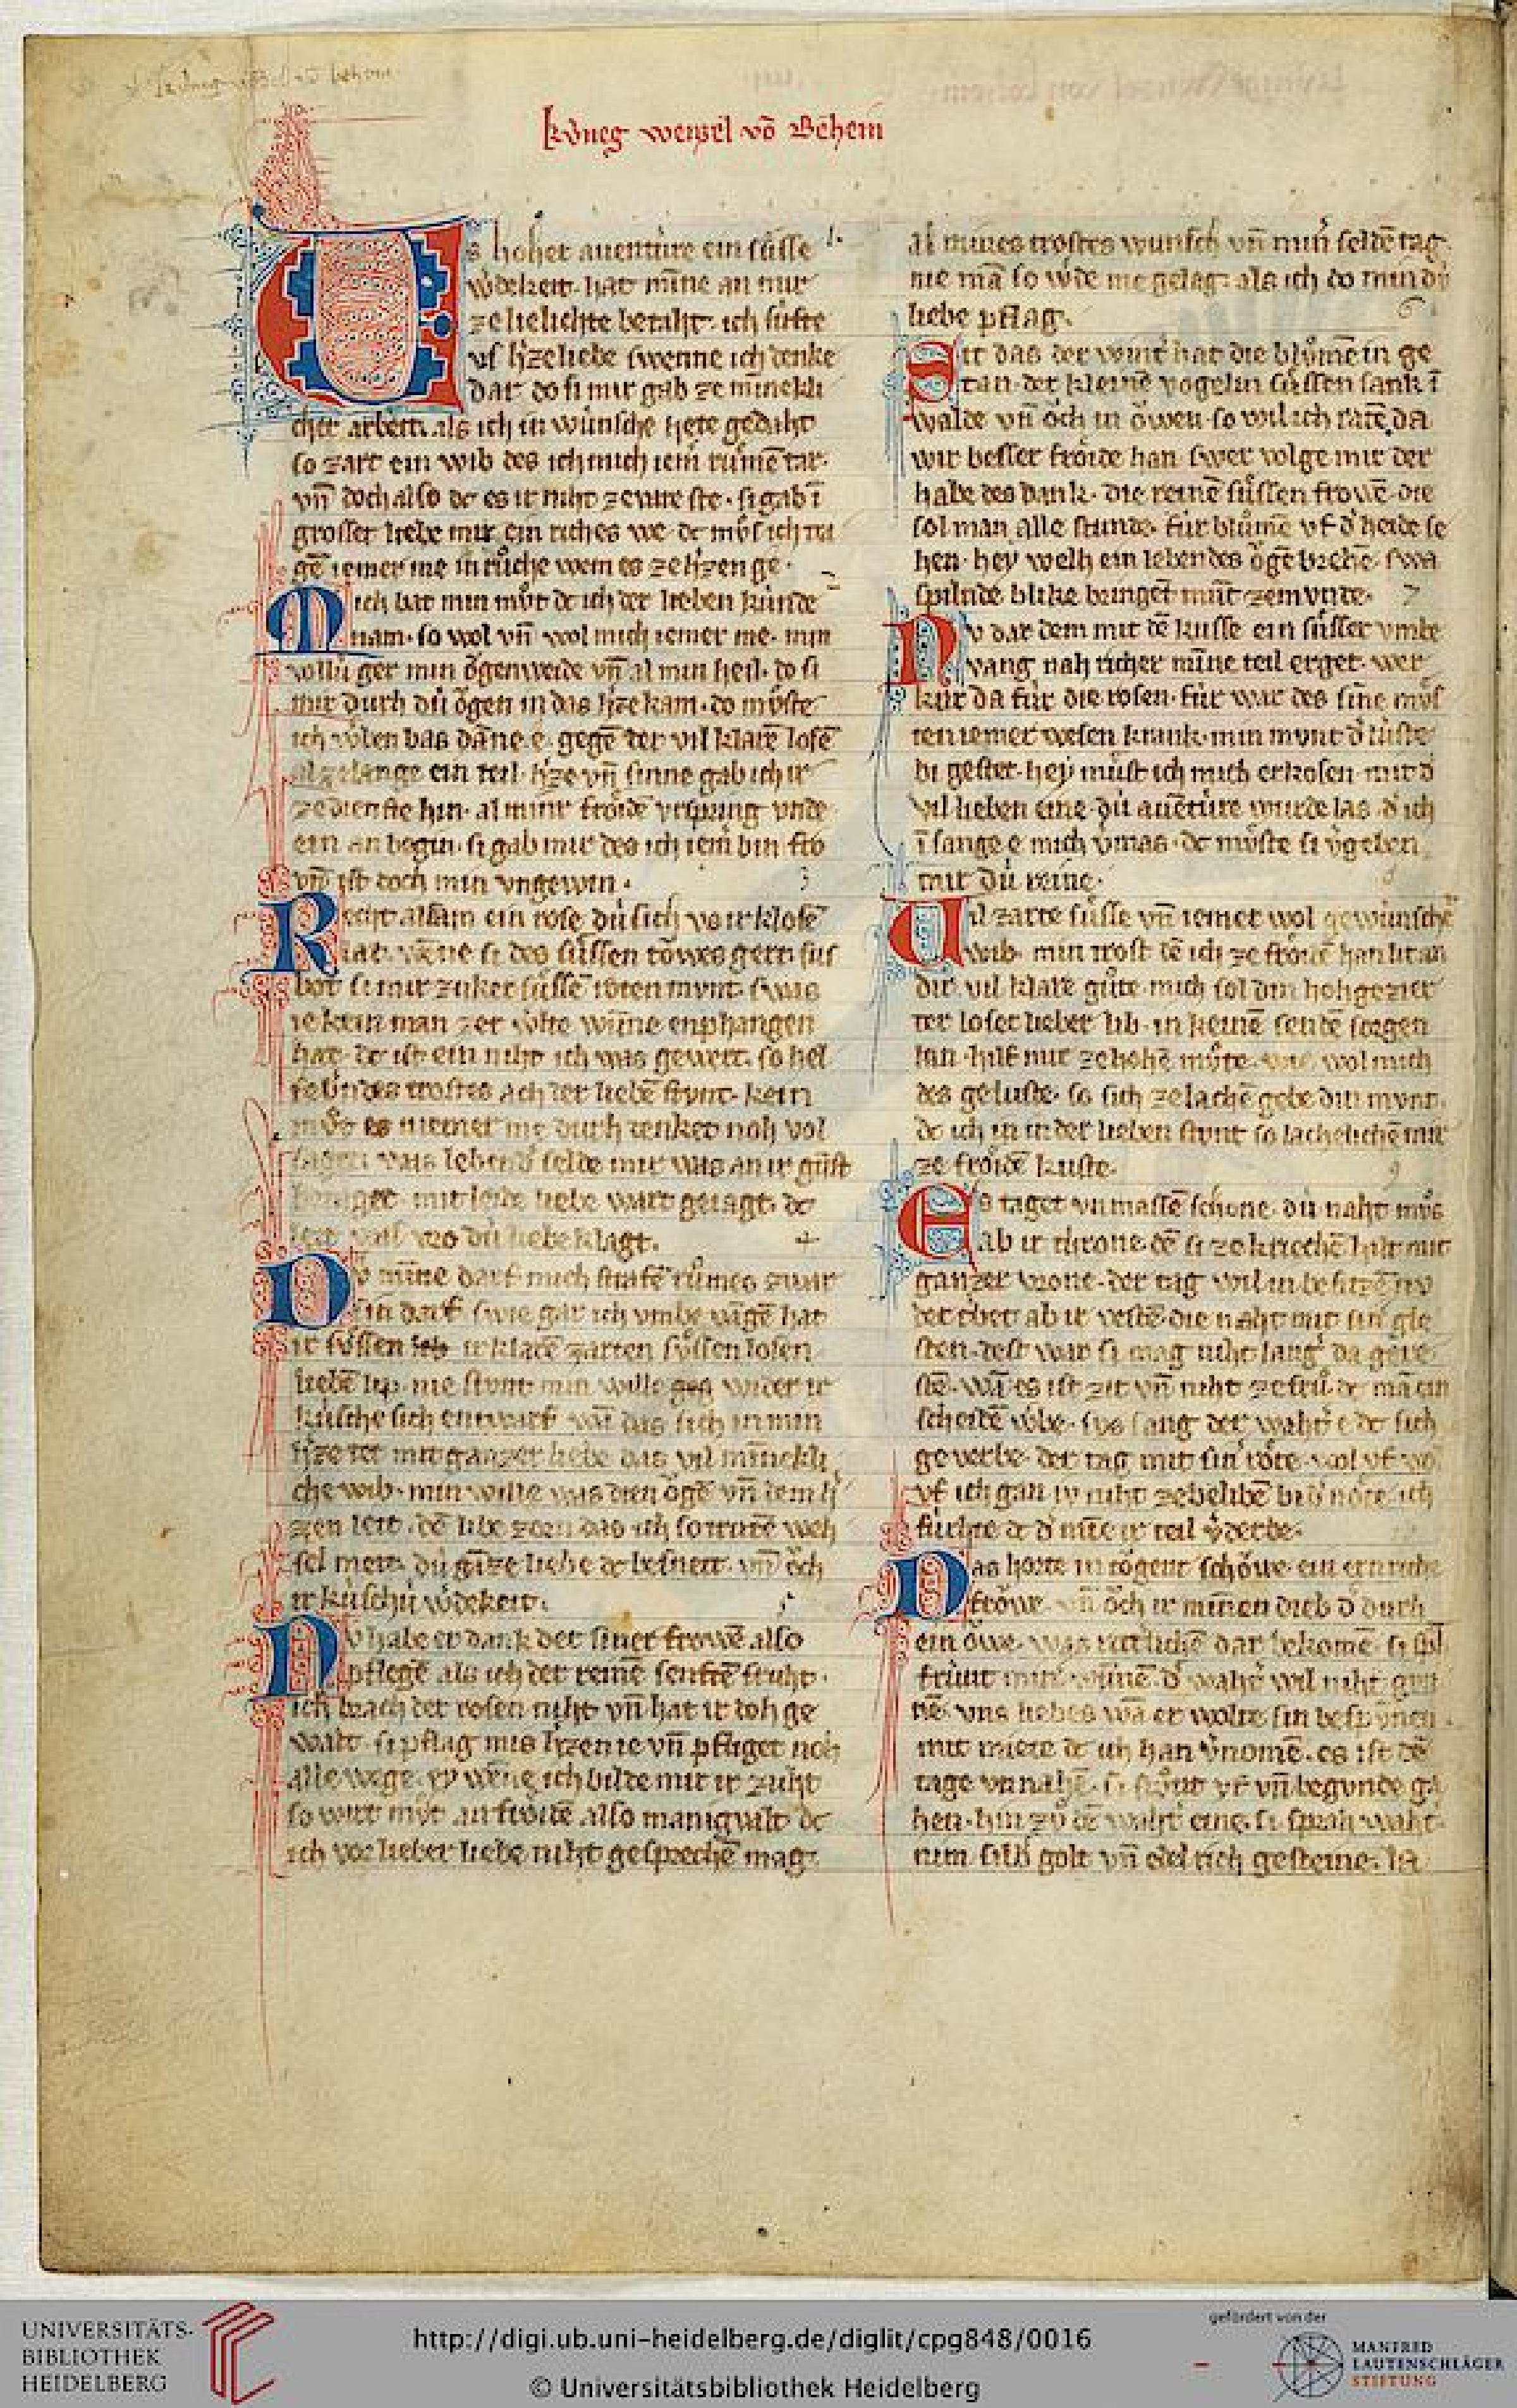 kv́neg wenzel vō Behein
Us hoher auentúre ein sússe 1.
wdekeit. hat mīne an mir
ze liehte braht. ich súfte
vf h'ze liebe swenne ich denke
dar. do si mir gab ze minekli
cher arbeit. als ich in wúnsche hete gedaht
so zart ein wib des ich mich iem' rúmē tar.
vn̄ doch also dc es ir niht ze vare ste. si gab ī
grosser liebe mir ein riches we. dc mv̊s ich tra
gē iemer me in rv̊che wem es ze h'zen ge. 2
Mich bat min mv̊t dc ich der lieben kúnde
nam. so wol vn̄ wol mich iemer me. min
vollú ger min ǒgenweide vn̄ al min heil. do si
mir durch dú ǒgen in das h'ze kam. do mv̊ste
ich wben bas dāne e. gegē der vil klarē losē
al ze lange ein teil. h'ze vn̄ sinne gab ich ir
ze dienste hin. al miner frǒide vrspring vnde
ein an begin. si gab mir des ich iem' bin fro
vn̄ ist doch min vngewin. 3
Recht alsam ein rose dú sich vs ir klosē
lat. wēne si des sússen tǒwes gert. sus
bot si mir zuker sússē roten mvnt. swas
ie kein man zer wlte wūne enphangen
hat. dc ist ein niht ich was gewert. so hel
febndes trostes ach der liebē stvnt. kein
mv̊t es niemer me durh denket noh vol
sagt was lebender selde mir was an ir gunst
betaget. mit leide liebe wart geiagt. dc
leit was vro dú liebe klagt. 4
Dv mīne darf mich strafē rv̊mes zwar
sin darf. swie gar ich vmbe vāgē hat
ir sv̊ssen leb ir klarē zarten sv̊ssen losen
liebē lip. nie stvnt min wille geg wider ir
kúsche sich entwarf. wā das sich in min
h'ze tet mit ganzer liebe das vil mīnekli
che wib. min wille was dien ǒgē vn̄ dem h'
zen leit. dē libe zorn das ich so trutē weh
sel meit. dú gāze liebe dc besneit. vn̄ ǒch
ir kúschú wdekeit. 5
Nv habe er dank der siner frowē also
pflege als ich der reinē senftē fruht.
ich brach der rosen niht vn̄ hat ir doh ge
walt. si pflag mis h'zen ie vn̄ pfliget noh
alle wege. ey wēne ich bilde mir ir zuht
so wirt mv̊t an frǒidē also manigualt. dc
ich vor lieber liebe niht gesprechē mag.
al mines trostes wunsch vn̄ min' seldē tag.
nie mā so wde me gelag. als ich do min dv́
liebe pflag. 6
Sit das der wint' hat die blv̊mē in ge
tan. der kleinē vogelin sússen sank ī
walde vn̄ ǒch in ǒwen. so wil ich ratē da
wir besser frǒide han. swer volge mir der
habe des dank. die reinē sússen frowē. die
sol man alle stunde. fúr blv̊mē vf d' heide se
hen. hey welh ein lebendes ǒgē brehē. swa
spilnde blike bringet mīt zem vnde. 7
Nv dar dem mit dē kusse ein sússer vmbe
vang nah richer mīne teil erget. wer
kúr da fúr die rosen. fúr war des sine mv̊s
ten iemer wesen krank. min mvnt d' lúste
bi gester. hey mv̊st ich mich erkosen. mit d'
vil lieben eine. dú auētúre wurde las. d' ich
ī sange e mich v'mas. dc mv̊ste si v'geben
mir dú reine. 8
Vil zarte sússe vn̄ iemer wol gewúnsche
wib. min trost dē ich ze frǒidē han lit an
dir. vil klare gv̊te. mich sol din hohgezier
ter loser lieber lib. in keinē sendē sorgen
lan. hilf mir ze hohē mv̊te. wol mich
des geluste. so sich ze lachē gebe din mvnt.
do ich in in der lieben stvnt so lachelichē mir
ze frǒidē kuste. 9
Es taget vnmassē schone. dú naht mv̊s
ab ir throne. dē si ze kriechē hilt mit
ganzer vrone. der tag wil in besitzē nv
der tribet ab ir vestē. die naht mit sin' gle
sten. dest war si mag niht lang' da gere
stē. wā es ist zit vn̄ niht ze frů. dc mā ein
scheidē wbe. sus sang der wahter e dc sich
geverbe. der tag mit sin' rǒte. wol vf wol
vf ich gan iv niht ze belibē bi d' nǒte. ich
fúrhte dc d' mīe ir teil v'derbe.
Das horte in tǒgent schǒwe. ein ernriche
frǒwe. vn̄ ǒch ir mīnen dieb d' durh
ein ǒwe. was rittlichē dar bekomē. si spch
frúnt mins wūnē. d' waht' wil niht gun
nē. vns liebes wā er wolte sin besvnen.
mit miete dc ich han v'nomē. es ist dē
tage vn nahē. si stv̊nt vf vn̄ begvnde ga
hen. hin zv̊ dē waht' eine. si sprah waht'
nim silb' golt vn̄ edel rich gesteine. la
UNIVERSITÄTS-
BIBLIOTHEK
HEIDELBERG
http://digi.ub.uni-heidelberg.de/diglit/cpg848/0016
© Universitätsbibliothek Heidelberg
gefördert von der
MANFRED
LAUTENSCHLÄGER
STIFTUNG